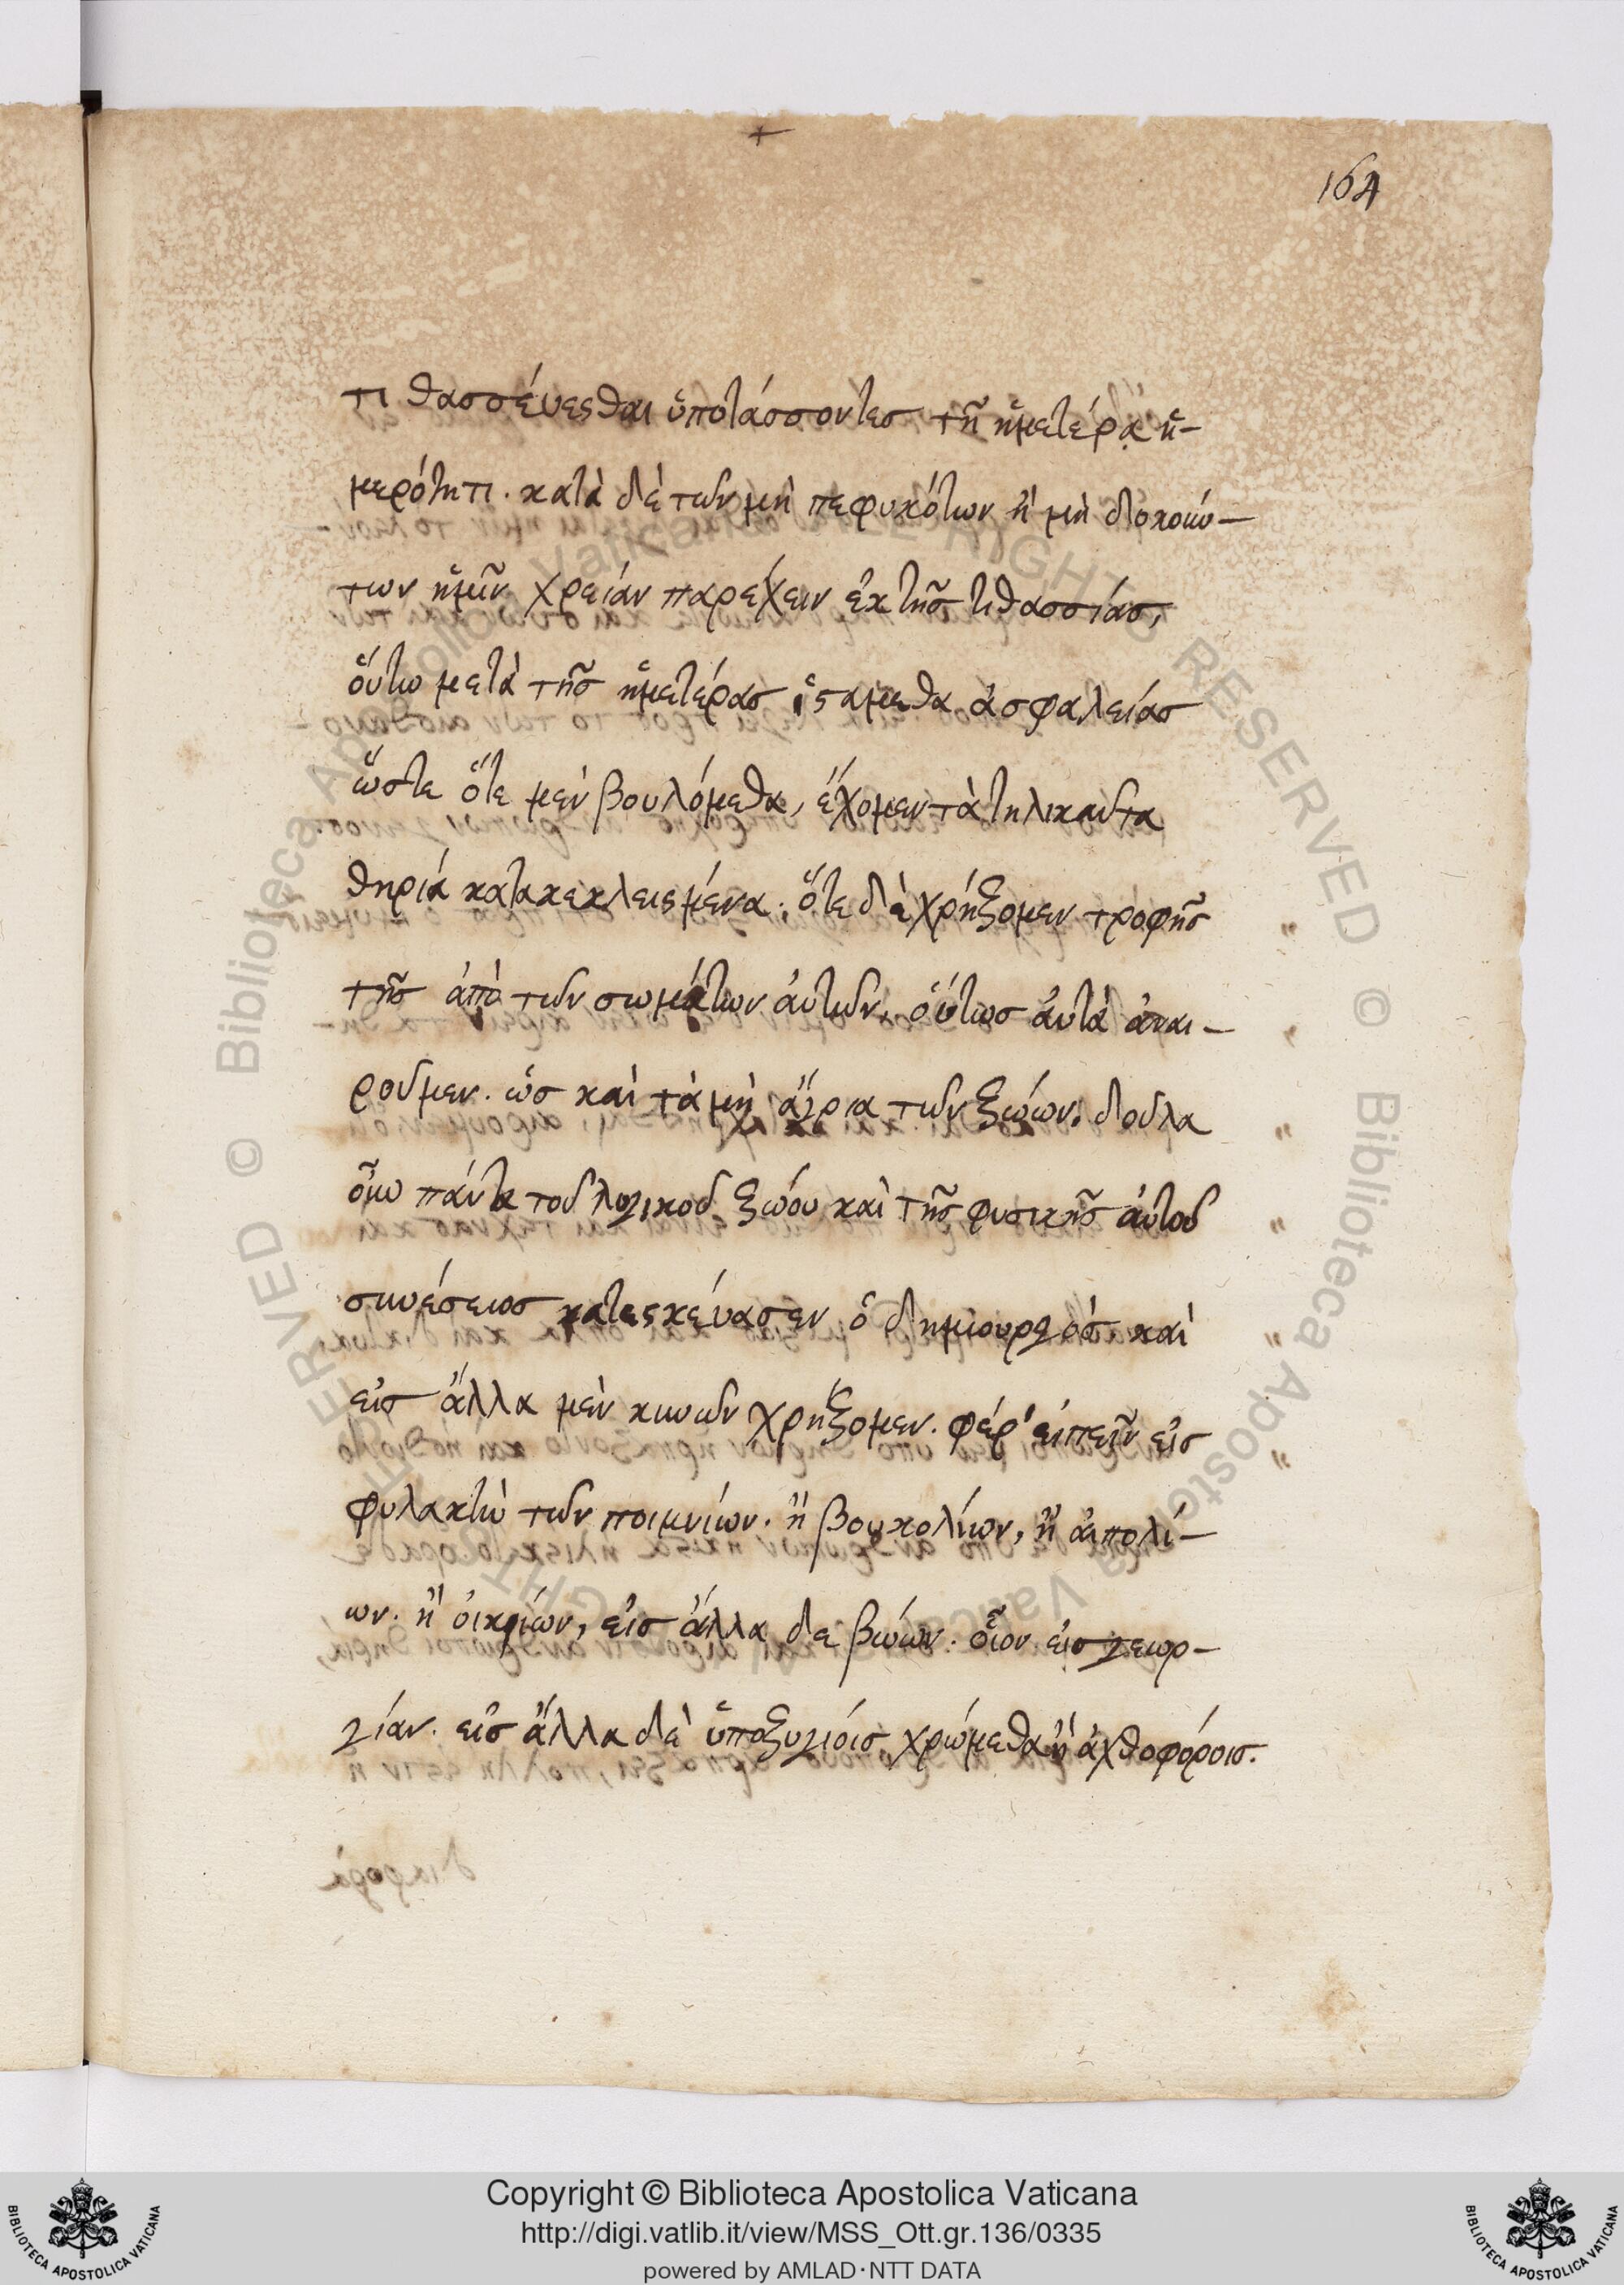 164
τιθασσέυεσθαι ὑποτάσσοντεσ τῆ ἡμετέρα ἡ-
μερότητι. κατὰ δὲ τῶν μὴ πεφυκότων ἢ μὴ δοκούν-
των ἡμῖν χρείαν παρέχειν ἐκ τῆσ τιθασσίασ,
ὅυτω μετὰ τῆσ ἡμετέρασ ἱστάμεθα ἀσφαλείασ
ὥστε ὅτε μὲν βουλόμεθα, ἔχομεν τὰ τηλικαῦτα
θηρία κατακεκλεισμένα. ὅτε δὲ χρήζομεν τροφῆσ
τῆσ ἀπὸ τῶν σωμάτων ἀυτῶν, ὅυτωσ ἀυτὰ ἀναι-
ροῦμεν. ὡσ καὶ τὰ μὴ ἄγρια τῶν ζώων. δοῦλα
οὖν πάντα τοῦ λογικοῦ ζώου καὶ τῆσ φυσικῆσ ἀυτοῦ
συνέσεωσ κατεσκέυασεν ὁ δημιουργόσ καὶ
εἰσ ἄλλα μὲν κυνῶν χρήζομεν. φέρ' ειπεῖν εἰσ
φυλακὴν τῶν ποιμνίων. ἢ βουκολίων, ἢ ἀιπολί-
ων. ἢ ὀικιῶν, εἰσ ἄλλα δε βοῶν. οἷον εἰσ γεωρ-
γίαν. εἰσ ἄλλα δὲ ὑποζυγίοισ χρώμεθα ἢ ἀχθοφόροισ.
Copyright © Biblioteca Apostolica Vaticana
http://digi.vatlib.it/view/MSS_Ott.gr.136/0335
powered by AMLAD·NTT DATA